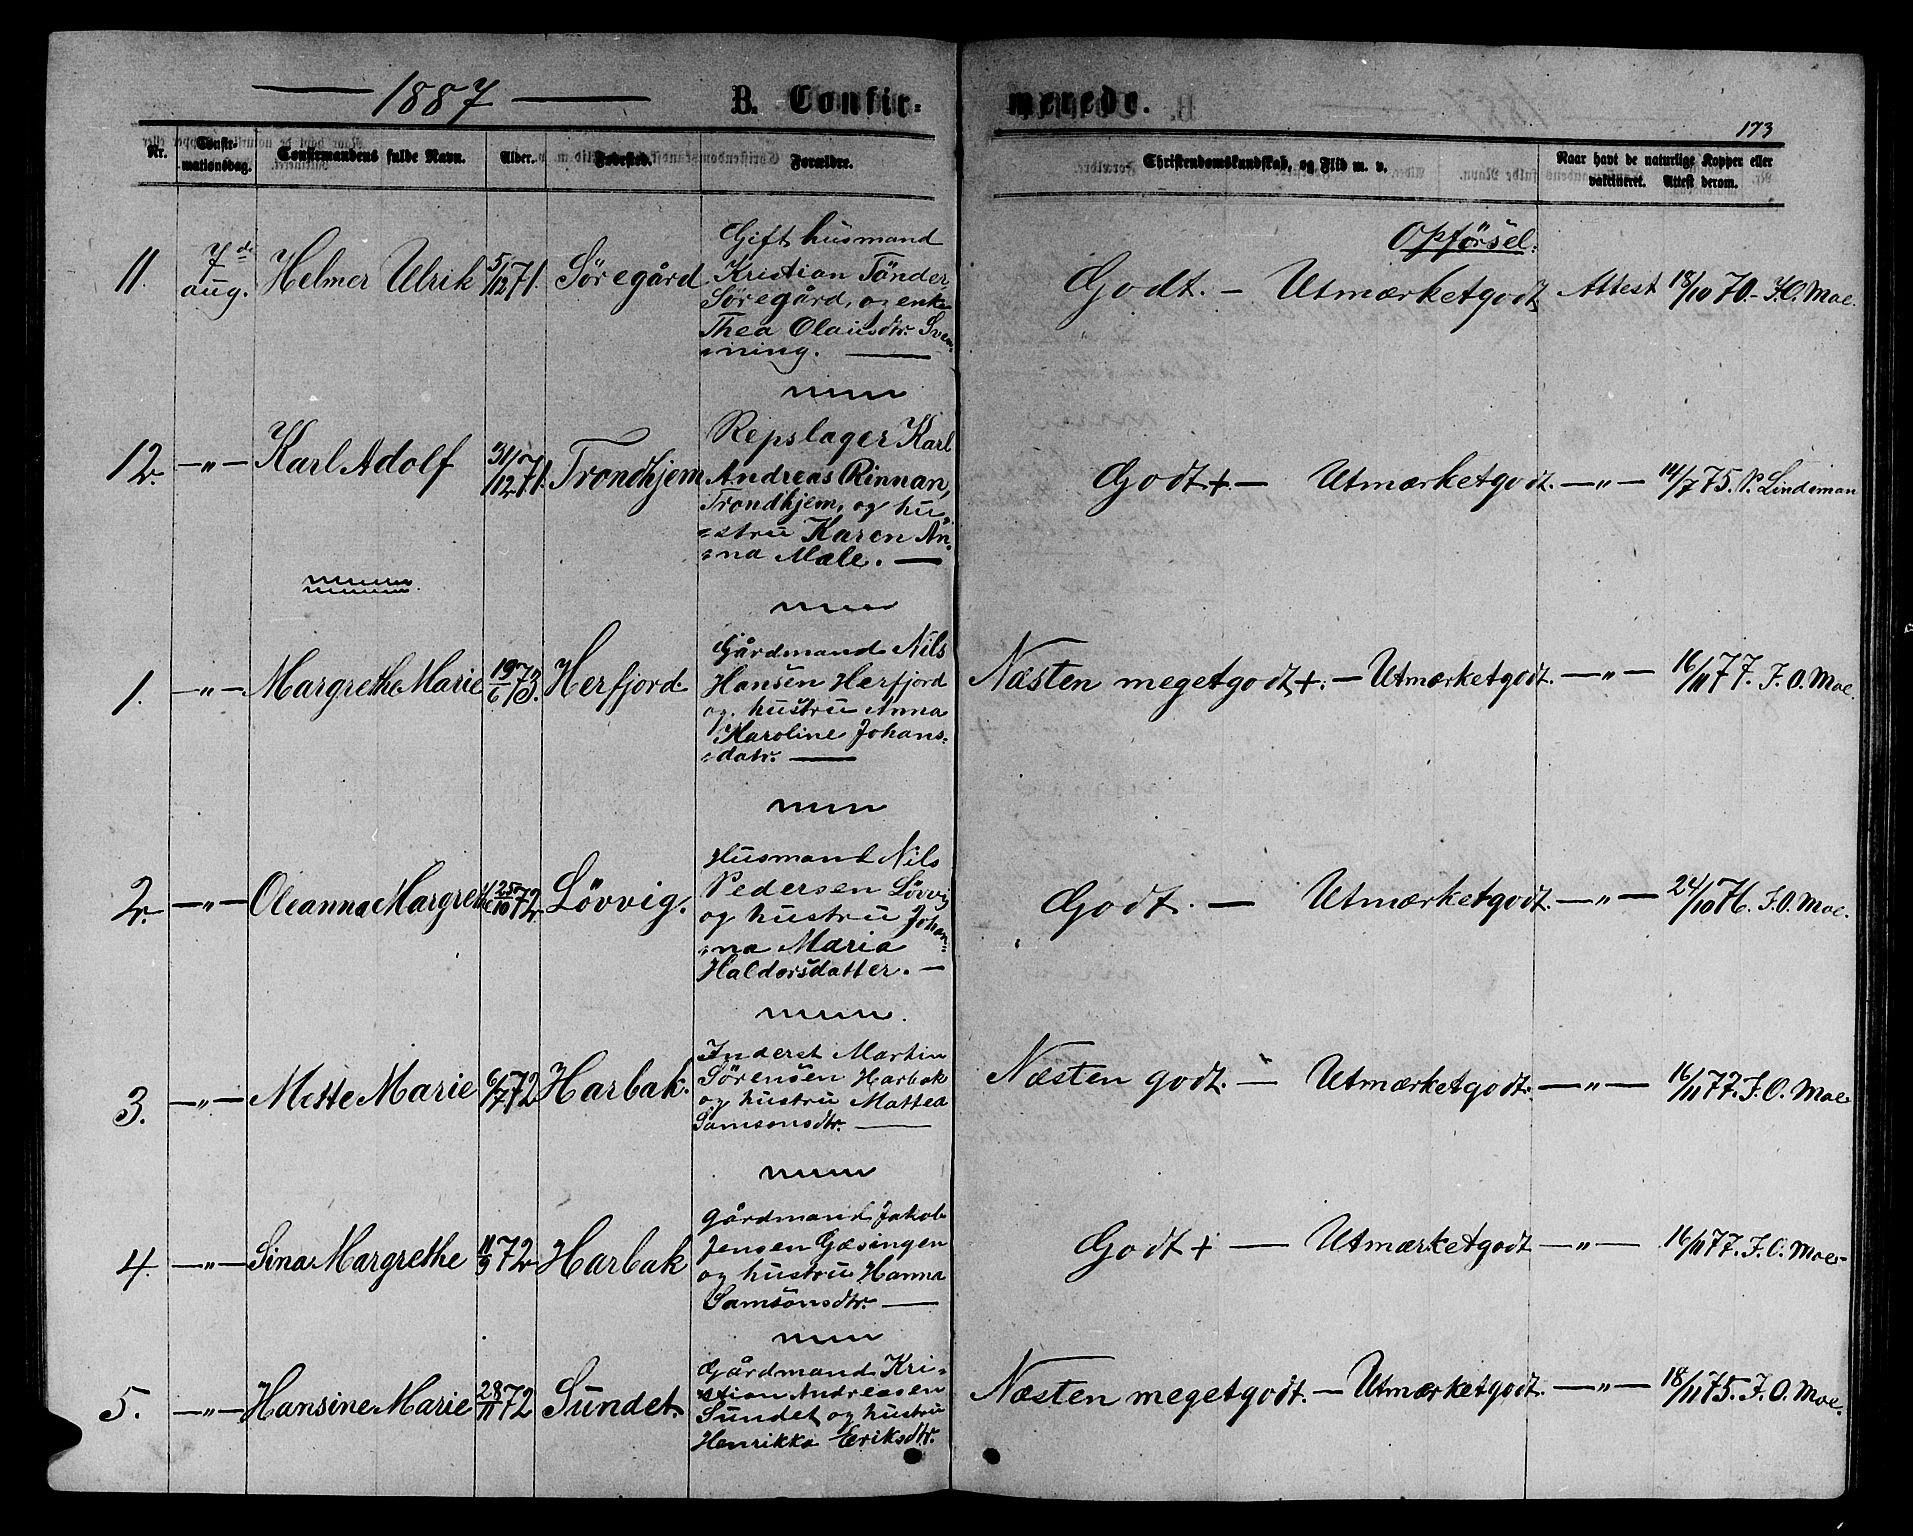 1887 B. Confir- merede.
173
Nr. Confir-mationsdag. Confirmandens fulde Navn. Alder. Fødested. Forældre. Christendomskundskab, og Flid m. v. Naar havt de naturlige Kopper eller vakcineret. Attest derom.
Opförsel.
11. 7de aug. Helmer Ulrik 5/12 71. Söregård
Gift husmand
Kristian Tönder,
Söregård, og enke
Thea Olausdtr. Sven-
-ning. —
Godt. — Utmærketgodt Attest 18/10 70. - J.O. Moe.
12. —"— Karl Adolf 31/12 71. Trondhjem
Repslager Karl
Andreas Rinnan,
Trondhjem, og hu-
-stru Karen An-
-na Male. —
Godt+. — Utmærketgodt. —"— 14/7 75. P. Lindeman
1. —"— Margrethe Marie 19/6 73. Herfjord
Gårdmand Nils
Hansen Herfjord
og hustru Anna
Karoline Johans-
-datr. —
Næsten megetgodt+. — Utmærketgodt. —"— 16/11 77. J. O. Moe.
2. —"— Oleanna Margrethe 25/10 72. Lövvig.
Husmand Nils
Pedersen Lövvig
og hustru Johan-
-na Maria
Haldorsdatter. —
Godt. — Utmærketgodt. —"— 24/10 76. J.O. Moe.
3. —"— Mette Marie 6/7 72 Harbak.
Inderst Martin
Sörensen Harbak
og hustru Mattea
Samsonsdtr. —
Næsten godt. — Utmærketgodt. —"— 16/11 77. J. O. Moe
4. —"— Sina Margrethe 11/9 72. Harbak
Gårdmand Jakob
Jensen Gæsingen
og hustru Hanna
Samsonsdtr. —
Godt + — Utmærketgodt —"— 16/11 77. J. O. Moe.
5. —"— Hansine Marie 28/11 72 Sundet.
Gårdmand Kri-
-stian Andreasen
Sundet og hustru
Henrikka Eriksdtr.
Næsten megetgodt. — Utmærketgodt. —"— 18/11 75. J. O. Moe.